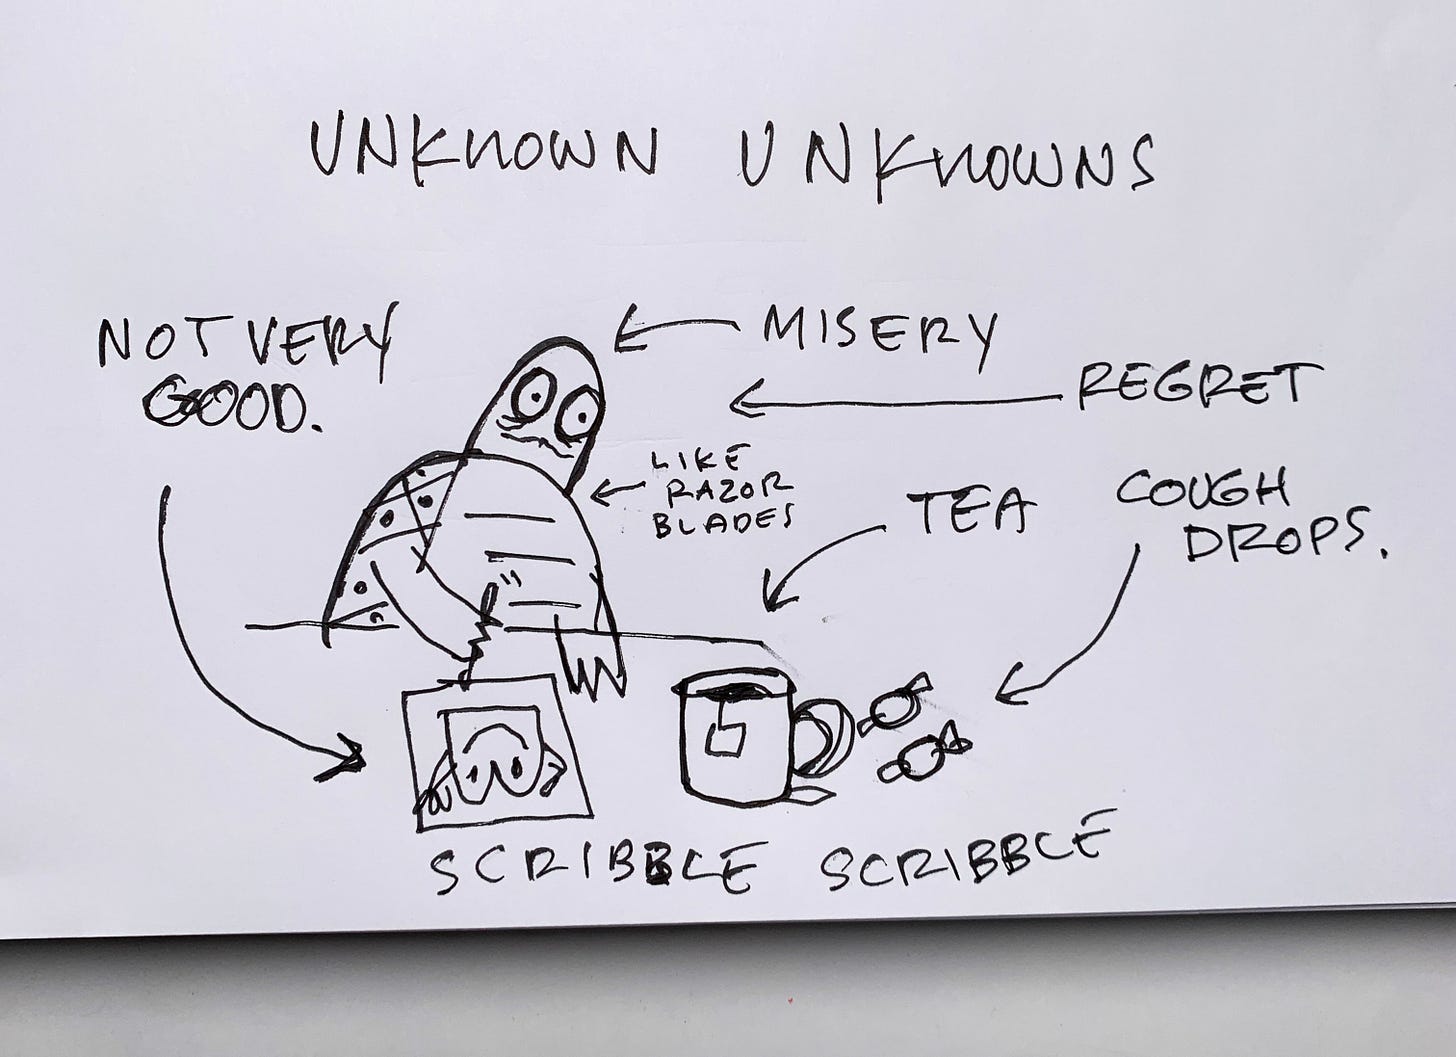 UNKNOWN UNKNOWNS
NOT VERY
GOOD.
MISERY
REGRET
LIKE
RAZOR
BLADES
TEA
COUGH
DROPS.
SCRIBBLE SCRIBBLE